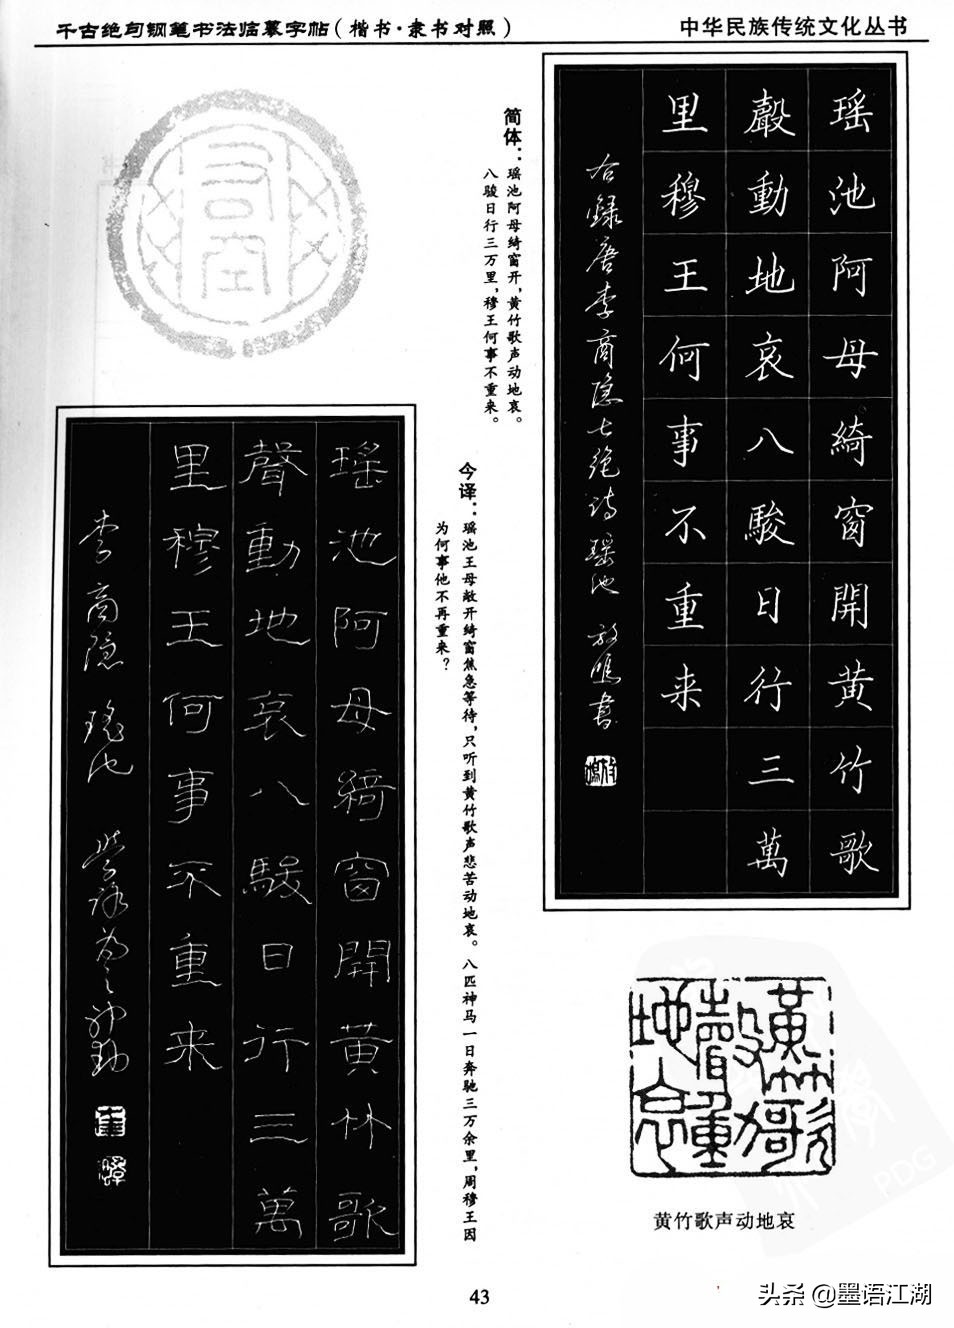 千古绝句钢笔书法临摹字帖（楷书·隶书对照）
中华民族传统文化丛书
瑶池阿母綺窗開黄竹歌
聲動地哀八駿日行三萬
里穆王何事不重来
右錄唐李商隐七绝诗瑶池
简体：瑶池阿母绮窗开，黄竹歌声动地哀。
八骏日行三万里，穆王何事不重来。
今译：瑶池王母敞开绮窗焦急等待，只听到黄竹歌声悲苦动地哀。八匹神马一日奔驰三万余里，周穆王因
为何事他不再重来？
瑶池阿母綺窗開黄竹歌
聲動地哀八駿日行三萬
里穆王何事不重来
李商隐瑶池
黄竹歌聲動地哀
黄竹歌声动地哀
43
PDG
头条 @墨语江湖